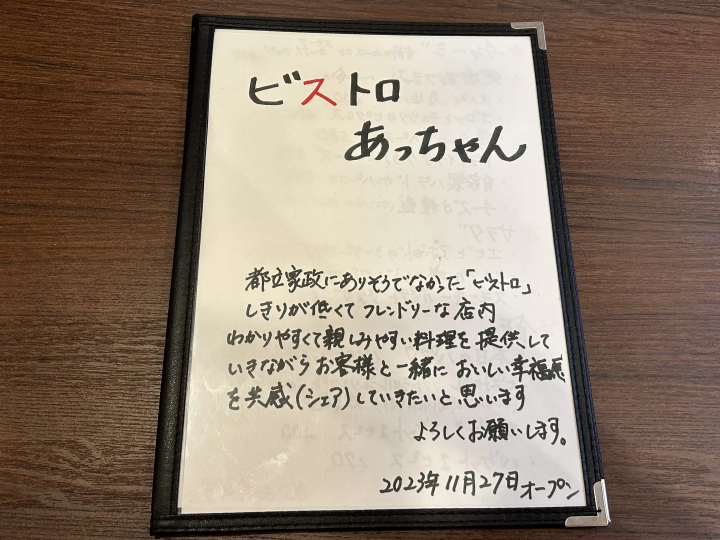 ビストロ
あっちゃん
都立家政にありそうでなかった「ビストロ」
しきりが低くてフレンドリーな店内
わかりやすくて親しみやすい料理を提供して
いきながらお客様と一緒においしい幸福感
を共感(シェア)していきたいと思います
よろしくお願いします。
2023年11月27日オープン